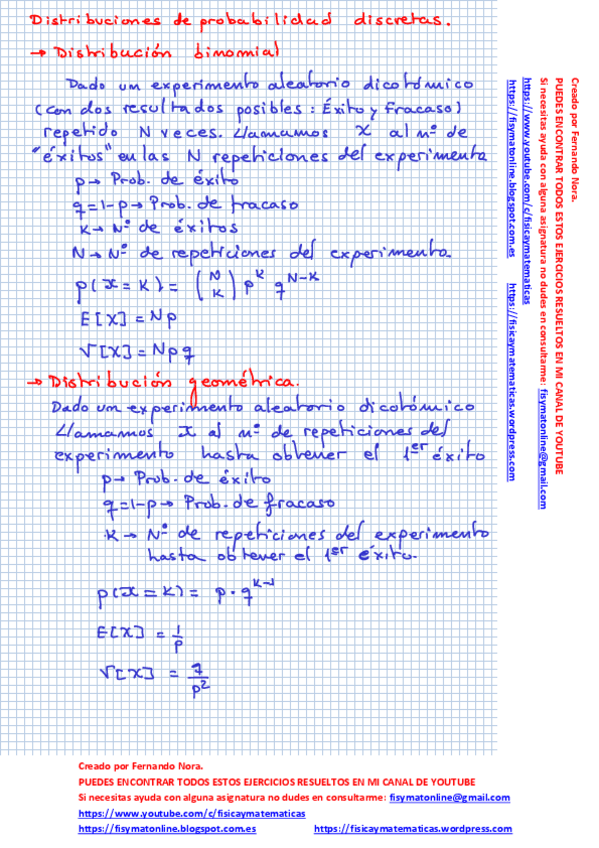 Distribuciones de probabilidad discretas.
→ Distribución binomial
Dado un experimento aleatorio dicotómico
(con dos resultados posibles: Éxito y Fracaso)
repetido N veces. Llamamos X al nº de
"éxitos" en las N repeticiones del experimento
p → Prob. de éxito
q=1-p → Prob. de fracaso
K → Nº de éxitos
N → Nº de repeticiones del experimento.
p(X=K) = (N K) p^K q^{N-K}
E[X] = Np
V[X] = Npq
→ Distribución geométrica.
Dado un experimento aleatorio dicotómico
Llamamos X al nº de repeticiones del
experimento hasta obtener el 1er éxito
p → Prob. de éxito
q=1-p → Prob. de fracaso
K → Nº de repeticiones del experimento
hasta obtener el 1er éxito.
p(X=K) = p · q^{K-1}
E[X] = 1/p
V[X] = q/p²
Creado por Fernando Nora.
PUEDES ENCONTRAR TODOS ESTOS EJERCICIOS RESUELTOS EN MI CANAL DE YOUTUBE
Si necesitas ayuda con alguna asignatura no dudes en consultarme: fisymatonline@gmail.com
https://www.youtube.com/c/fisicaymatematicas
https://fisymatonline.blogspot.com.es https://fisicaymatematicas.wordpress.com
Creado por Fernando Nora.
PUEDES ENCONTRAR TODOS ESTOS EJERCICIOS RESUELTOS EN MI CANAL DE YOUTUBE
Si necesitas ayuda con alguna asignatura no dudes en consultarme: fisymatonline@gmail.com
https://www.youtube.com/c/fisicaymatematicas
https://fisymatonline.blogspot.com.es https://fisicaymatematicas.wordpress.com